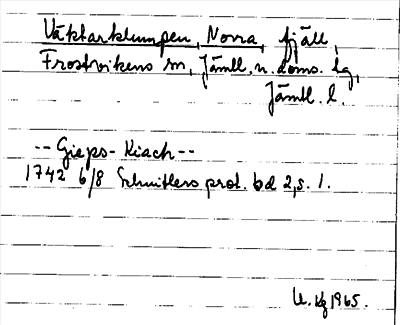 Väktarklumpen, Norra, fjäll,
Frostvikens sn, Jämtl. n. doms. hg,
Jämtl. l.
-- Gieps-Kiach --
1742 6/8 Schnitlers prot. bd 2, s. 1.
1965.